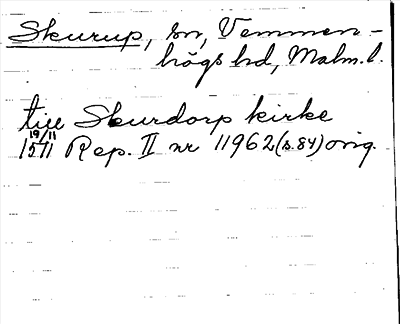 Skurup, sn, Vemmen-
högs hd, Malm. l.
till Skurdorp kirke
19/11
1571 Rep. II nr 11962 (s. 84) orig.